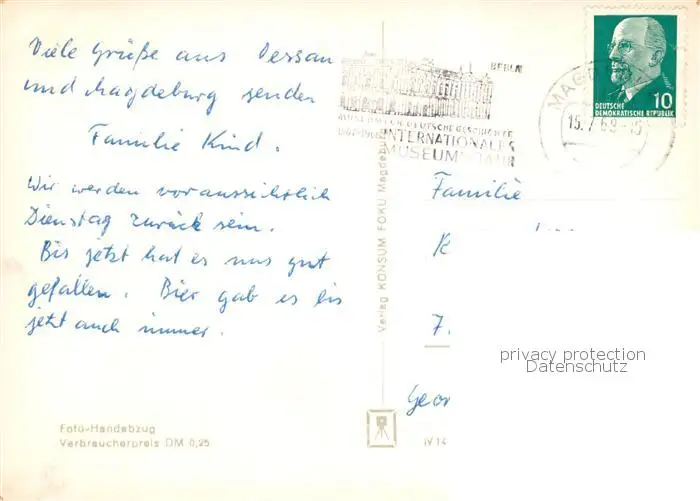 Viele Grüße aus Dessau
und Magdeburg senden
Familie Kind.
Wir werden voraussichtlich
Dienstag zurück sein.
Bis jetzt hat es uns gut
gefallen. Bier gab es bis
jetzt auch immer.
Foto-Handabzug
Verbraucherpreis DM 0,25
Verlag KONSUM FOKU Magdeburg
BERLIN
MUSEUM FÜR DEUTSCHE GESCHICHTE
INTERNATIONALES
MUSEUMSJAHR
MAGDEBURG
15.7.69-15
10
DEUTSCHE
DEMOKRATISCHE REPUBLIK
Familie
K
7.
Geor
IV 14
privacy protection
Datenschutz